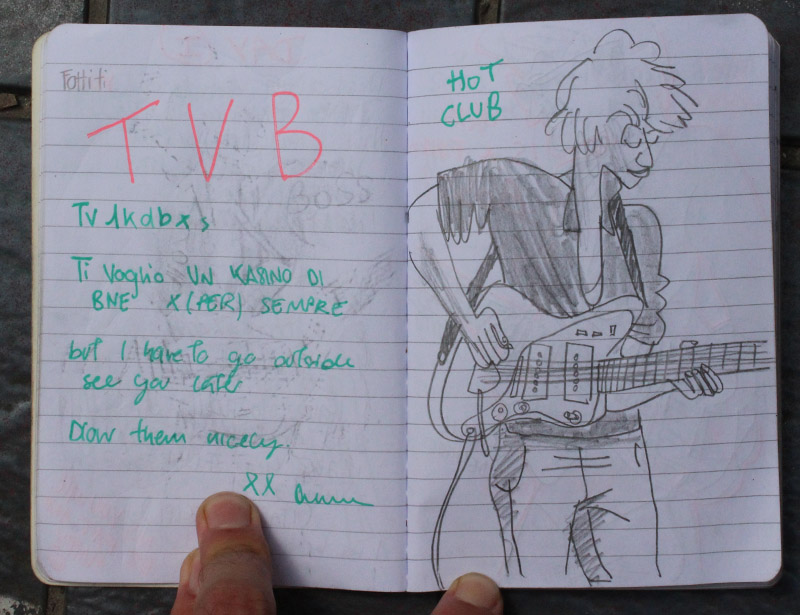 TVB
Tv 1kdbxs
Ti Voglio UN KASINO DI
BNE X(PER) SEMPRE
but I have to go outside
see you later
Draw them nicely.
XX
HOT
CLUB